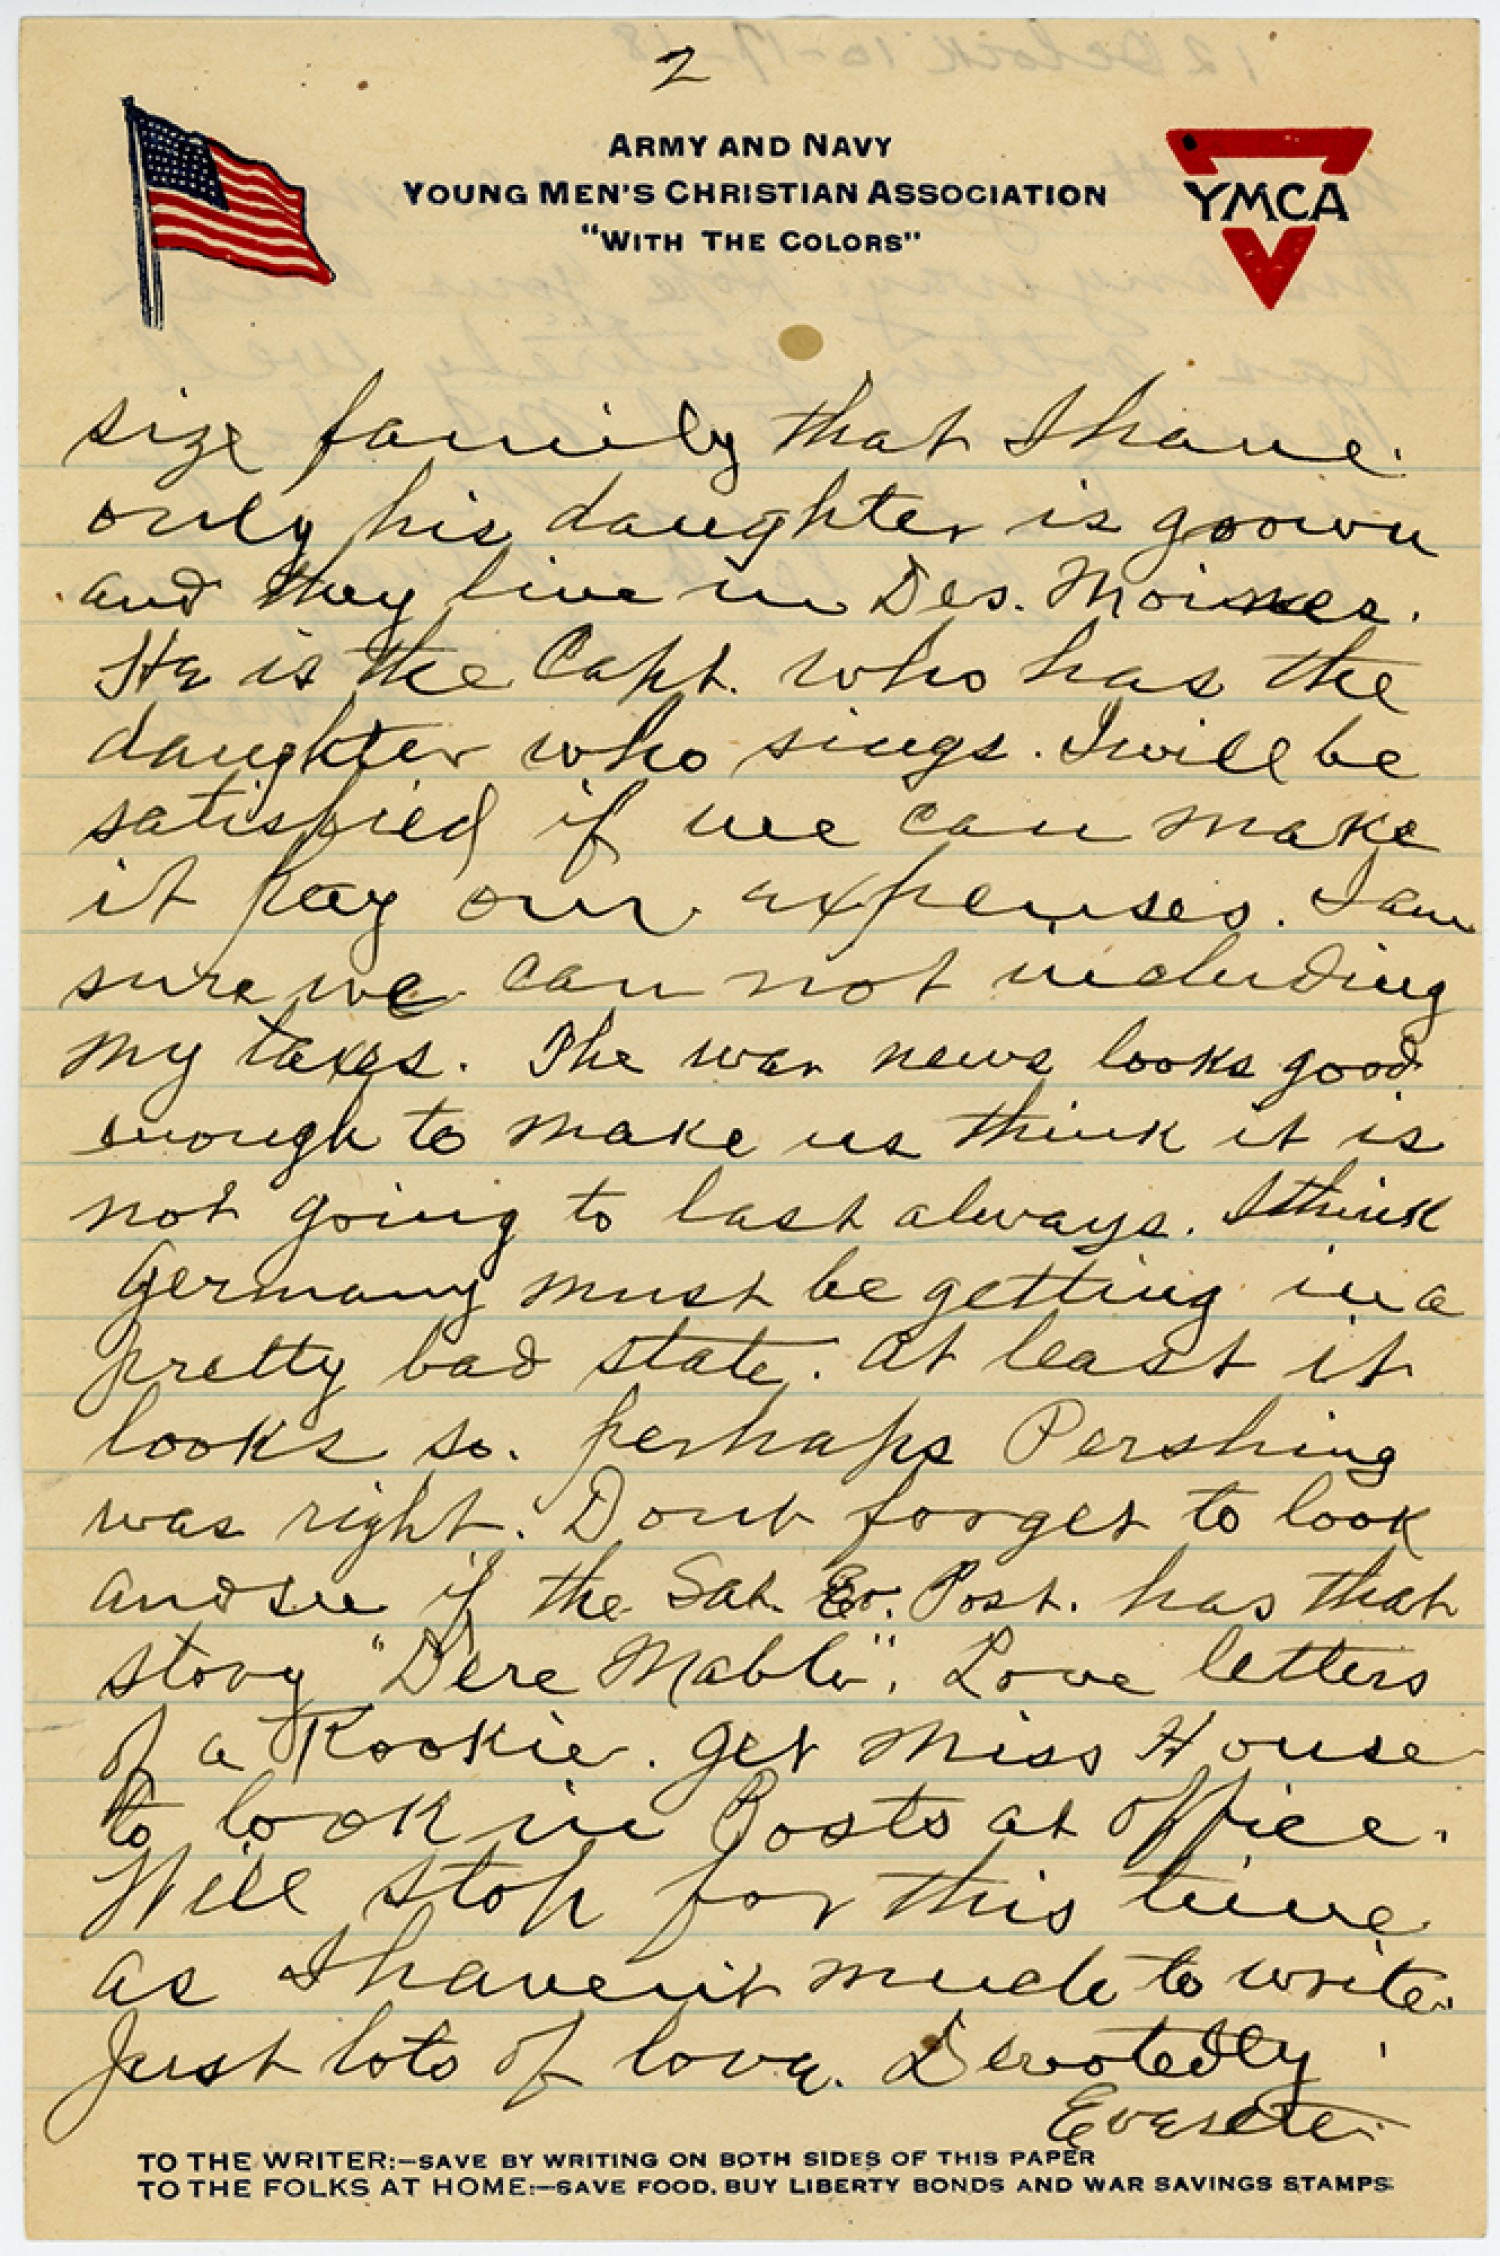 2
ARMY AND NAVY
YOUNG MEN'S CHRISTIAN ASSOCIATION
"WITH THE COLORS"
YMCA
size family that I have.
only his daughter is grown
and they live in Des. Moines.
He is the Capt. who has the
daughter who sings. I will be
satisfied if we can make
it pay our expenses. I am
sure we can not including
my taxes. The war news looks good
enough to make us think it is
not going to last always. I think
Germany must be getting in a
pretty bad state. At least it
looks so. perhaps Pershing
was right. Dont forget to look
and see if the Sat. Ev. Post. has that
story "Dere Mable". Love letters
of a Rookie. Get Miss House
to look in Posts at office.
Will stop for this time
as I haven't much to write.
Just lots of love. Devotedly
Everette.
TO THE WRITER:—SAVE BY WRITING ON BOTH SIDES OF THIS PAPER
TO THE FOLKS AT HOME:—SAVE FOOD, BUY LIBERTY BONDS AND WAR SAVINGS STAMPS